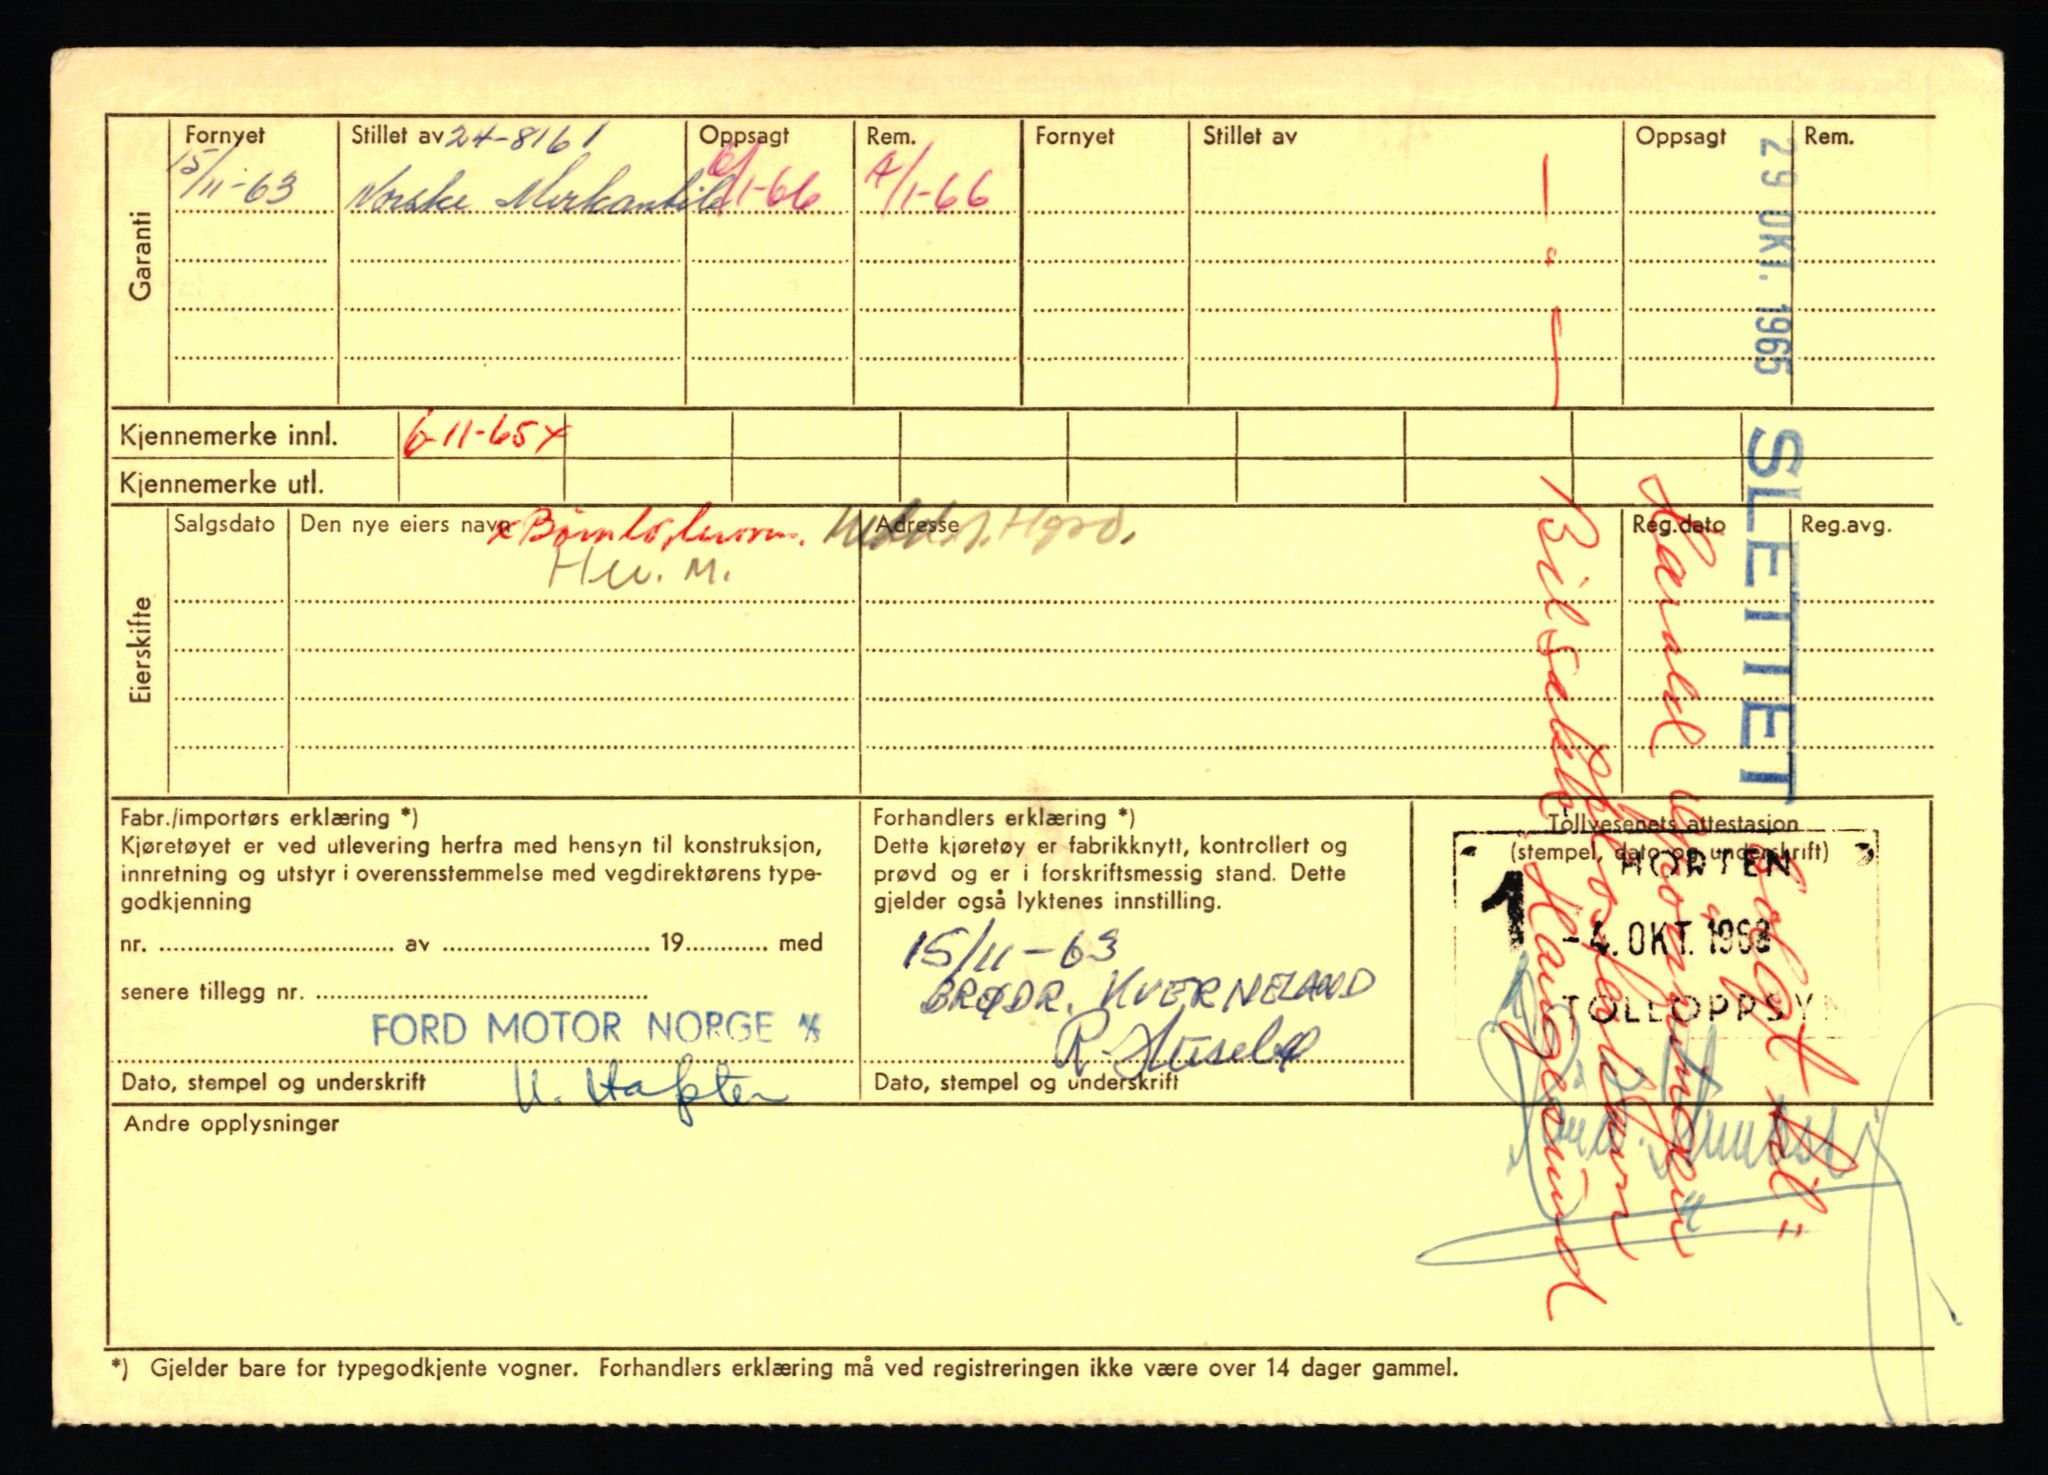 Garanti
Fornyet
Stillet av 24-8161
Oppsagt
Rem.
Fornyet
Stillet av
Oppsagt
Rem.
15/11-63
Norske Merkantile
6/1-66
A/1-66
Kjennemerke innl.
6-11-65 x
Kjennemerke utl.
Eierskifte
Salgsdato
Den nye eiers navn
Adresse
Reg.dato
Reg.avg.
Fabr./importørs erklæring *)
Kjøretøyet er ved utlevering herfra med hensyn til konstruksjon,
innretning og utstyr i overensstemmelse med vegdirektørens type-
godkjenning
nr. av 19 med
senere tillegg nr.
FORD MOTOR NORGE A/S
Dato, stempel og underskrift
Forhandlers erklæring *)
Dette kjøretøy er fabrikknytt, kontrollert og
prøvd og er i forskriftsmessig stand. Dette
gjelder også lyktenes innstilling.
15/11-63
BRØDR. KVERNELAND
Dato, stempel og underskrift
Tollvesenets attestasjon
(stempel, dato og underskrift)
HORTEN
1
-4. OKT. 1963
TOLLOPPSYN
29 OKT. 1965
SLETTET
Solgt til:
Harald
Bilsakk. Haugesund
Andre opplysninger
*) Gjelder bare for typegodkjente vogner. Forhandlers erklæring må ved registreringen ikke være over 14 dager gammel.